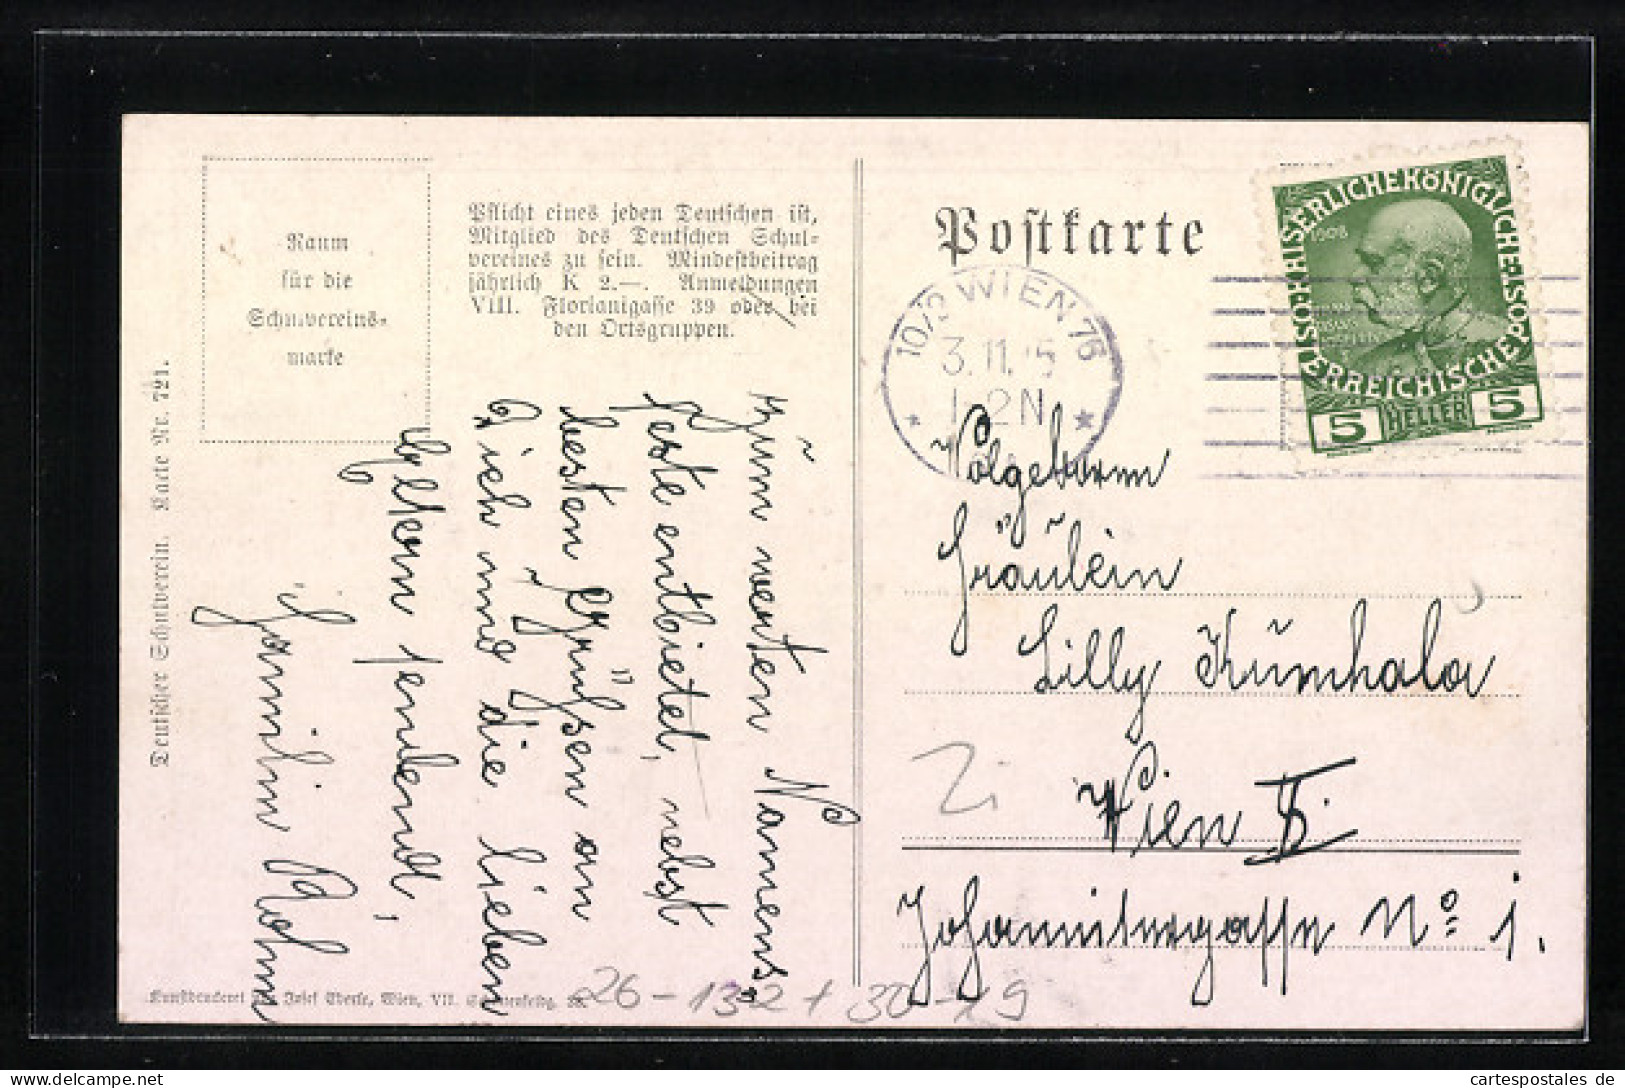 Raum
für die
Schulvereins-
marke
Pflicht eines jeden Deutschen ist,
Mitglied des Deutschen Schul-
vereines zu sein. Mindestbeitrag
jährlich K 2.—. Anmeldungen
VIII. Florianigasse 39 oder bei
den Ortsgruppen.
Deutscher Schulverein. Karte Nr. 721.
Zum werten Namens-
feste entbietet, nebst
besten Grüßen an
Dich und die lieben
Eltern sendend,
Familie Böhm
Kunstdruckerei Josef Eberle, Wien, VII.
Postkarte
10/3 WIEN 76
3.11.15
1-2N
KAISERLICHE KÖNIGLICHE ÖSTERREICHISCHE POST
1908
5 HELLER 5
Wolgeboren
Fräulein
Lilly Kumhala
Wien
Johannitergasse No 1.
26-132+30-19
cartespostales de